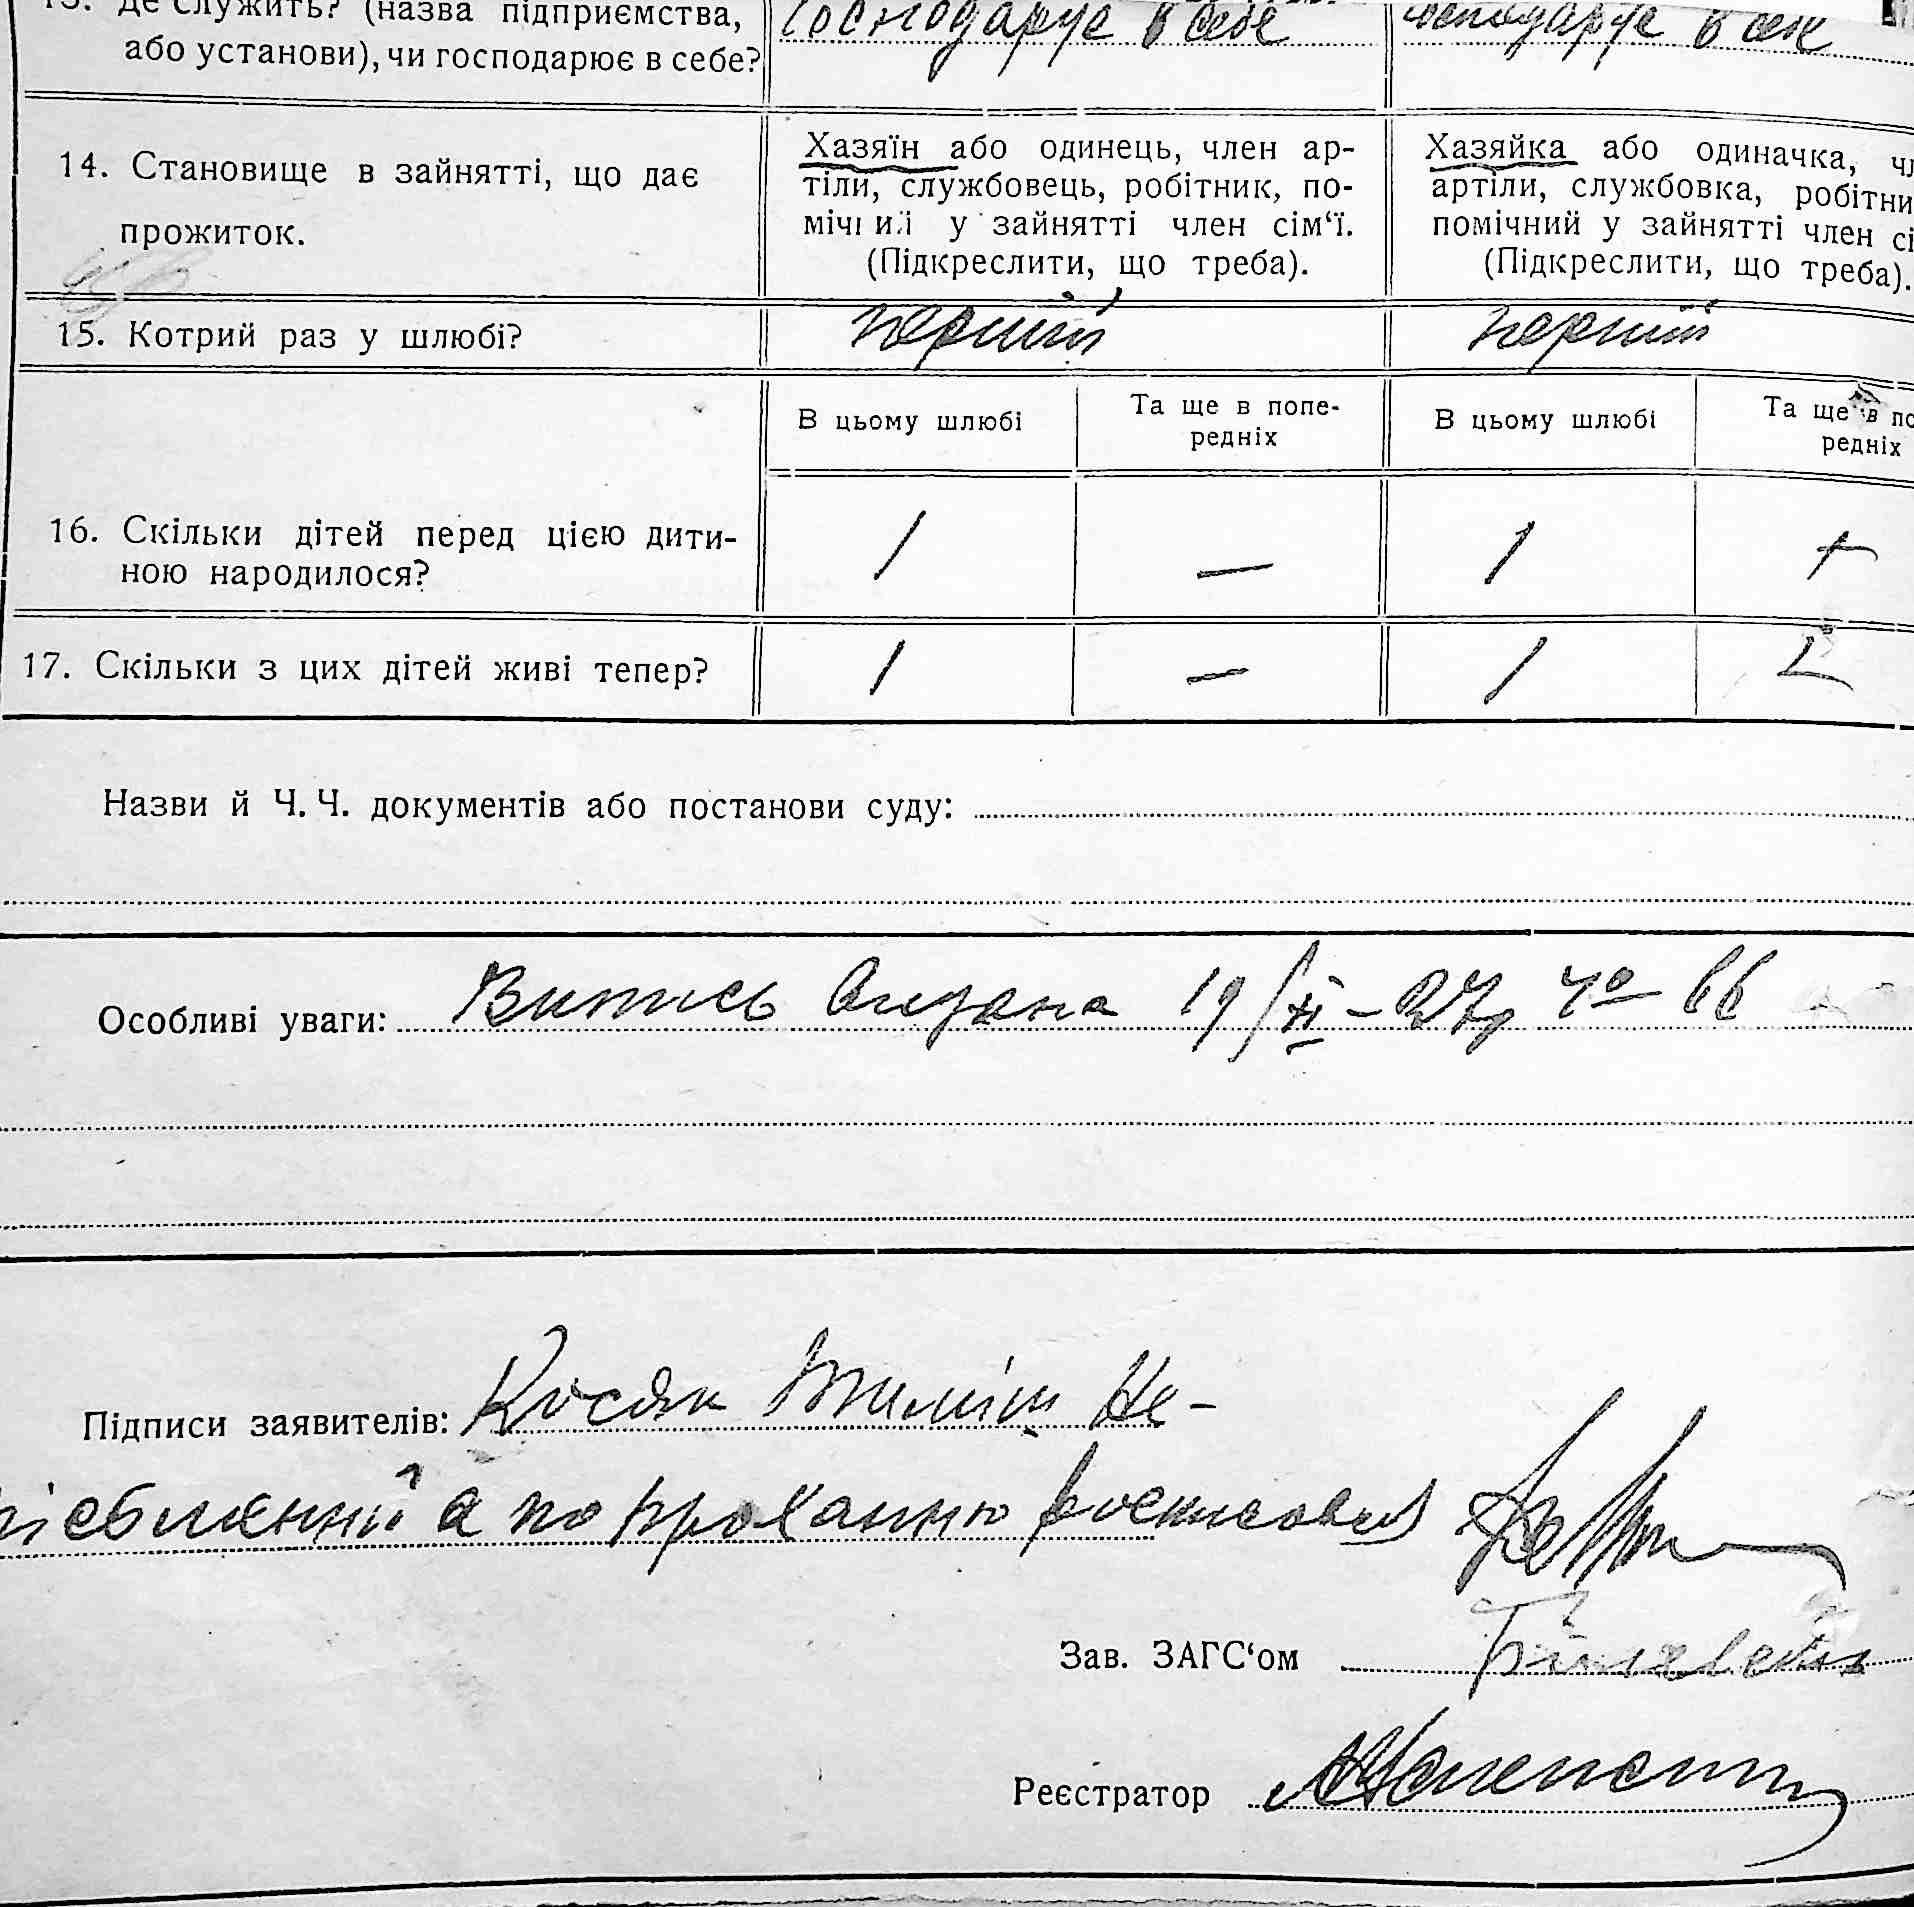 13. Де служить? (назва підприємства, Господарує в себе господарує в себе
або установи), чи господарює в себе?
14. Становище в зайнятті, що дає
прожиток.
Хазяїн або одинець, член ар-
тіли, службовець, робітник, по-
мічний у зайнятті член сім‘ї.
(Підкреслити, що треба).
Хазяйка або одиначка, чл
артіли, службовка, робітни
помічний у зайнятті член сі
(Підкреслити, що треба).
15. Котрий раз у шлюбі? перший перший
В цьому шлюбі
Та ще в попе-
редніх
В цьому шлюбі
Та ще в по
редніх
16. Скільки дітей перед цією дити-
ною народилося?
1 — 1 —
17. Скільки з цих дітей живі тепер? 1 — 1 —
Назви й Ч. Ч. документів або постанови суду:
Особливі уваги: Випись видана 19/XI–27р чо 66
Підписи заявителів: Косяк Пиліп Не-
письменний а по проханню росписовся
Зав. ЗАГС‘ом
Реєстратор